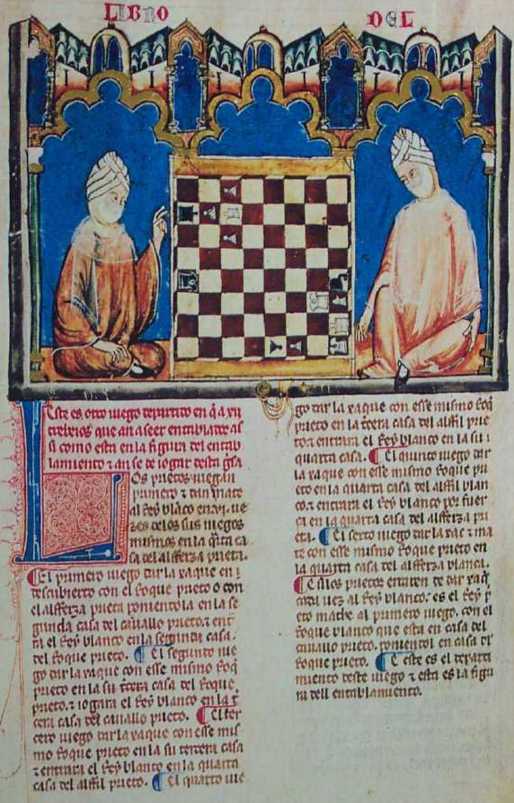 LIBRO DEL
Este es otro iuego departido en q̃ a xxi
trebeios que an a seer entablados as
si como esta en la figura del entab
lamiento ⁊ an se de iogar desta gisa
Los prietos iuegan
primero ⁊ dan mate
al Rey blãco en .vi. ue
zes de los sus iuegos
mismos en la q̃rta ca
sa del alfferza prieta.
¶ El primero iuego dar la xaque en
descubierto con el Roque prieto o con
el alfferza prieta poniendola en la se
gunda casa del cauallo prieto. ⁊ entr
ara el Rey blanco en la segunda casa.
del Roque prieto. ¶ El segundo iue
go dar la xaque con esse mismo Roq̃
prieto en la su tercera casa del Roque
prieto. ⁊ iogara el Rey blanco en la t̃
cera casa del cauallo prieto. ¶ El ter
cero iuego dar la xaque con esse mis
mo Roque prieto en la su tercera casa
⁊ entrara el Rey blanco en la tercera
casa del alffil prieto. ¶ El quarto iue
go dar la xaque con esse mismo Roq̃
prieto en la tercera casa del alffil prie
to ⁊ entrara el Rey blanco en la su
quarta casa. ¶ El quinto iuego dar
la xaque con esse mismo Roque pri
eto en la quarta casa del alffil blan
co. ⁊ entrara el Rey blanco por fuer
ça en la quarta casa del alfferza pri
eta. ¶ El sexto iuego dar la xac ⁊ ma
te con esse mismo Roque prieto en
la quarta casa del alfferza blanca.
¶ E si los prietos erraren de dar xaq̃
cada uez al Rey blanco. es el Rey pri
eto mathe al primero iuego. con el
Roque blanco que esta en casa del
cauallo prieto. poniendol en casa del
Roque prieto. ¶ E este es el departi
miento deste iuego ⁊ esta es la figu
ra dell entablamiento.